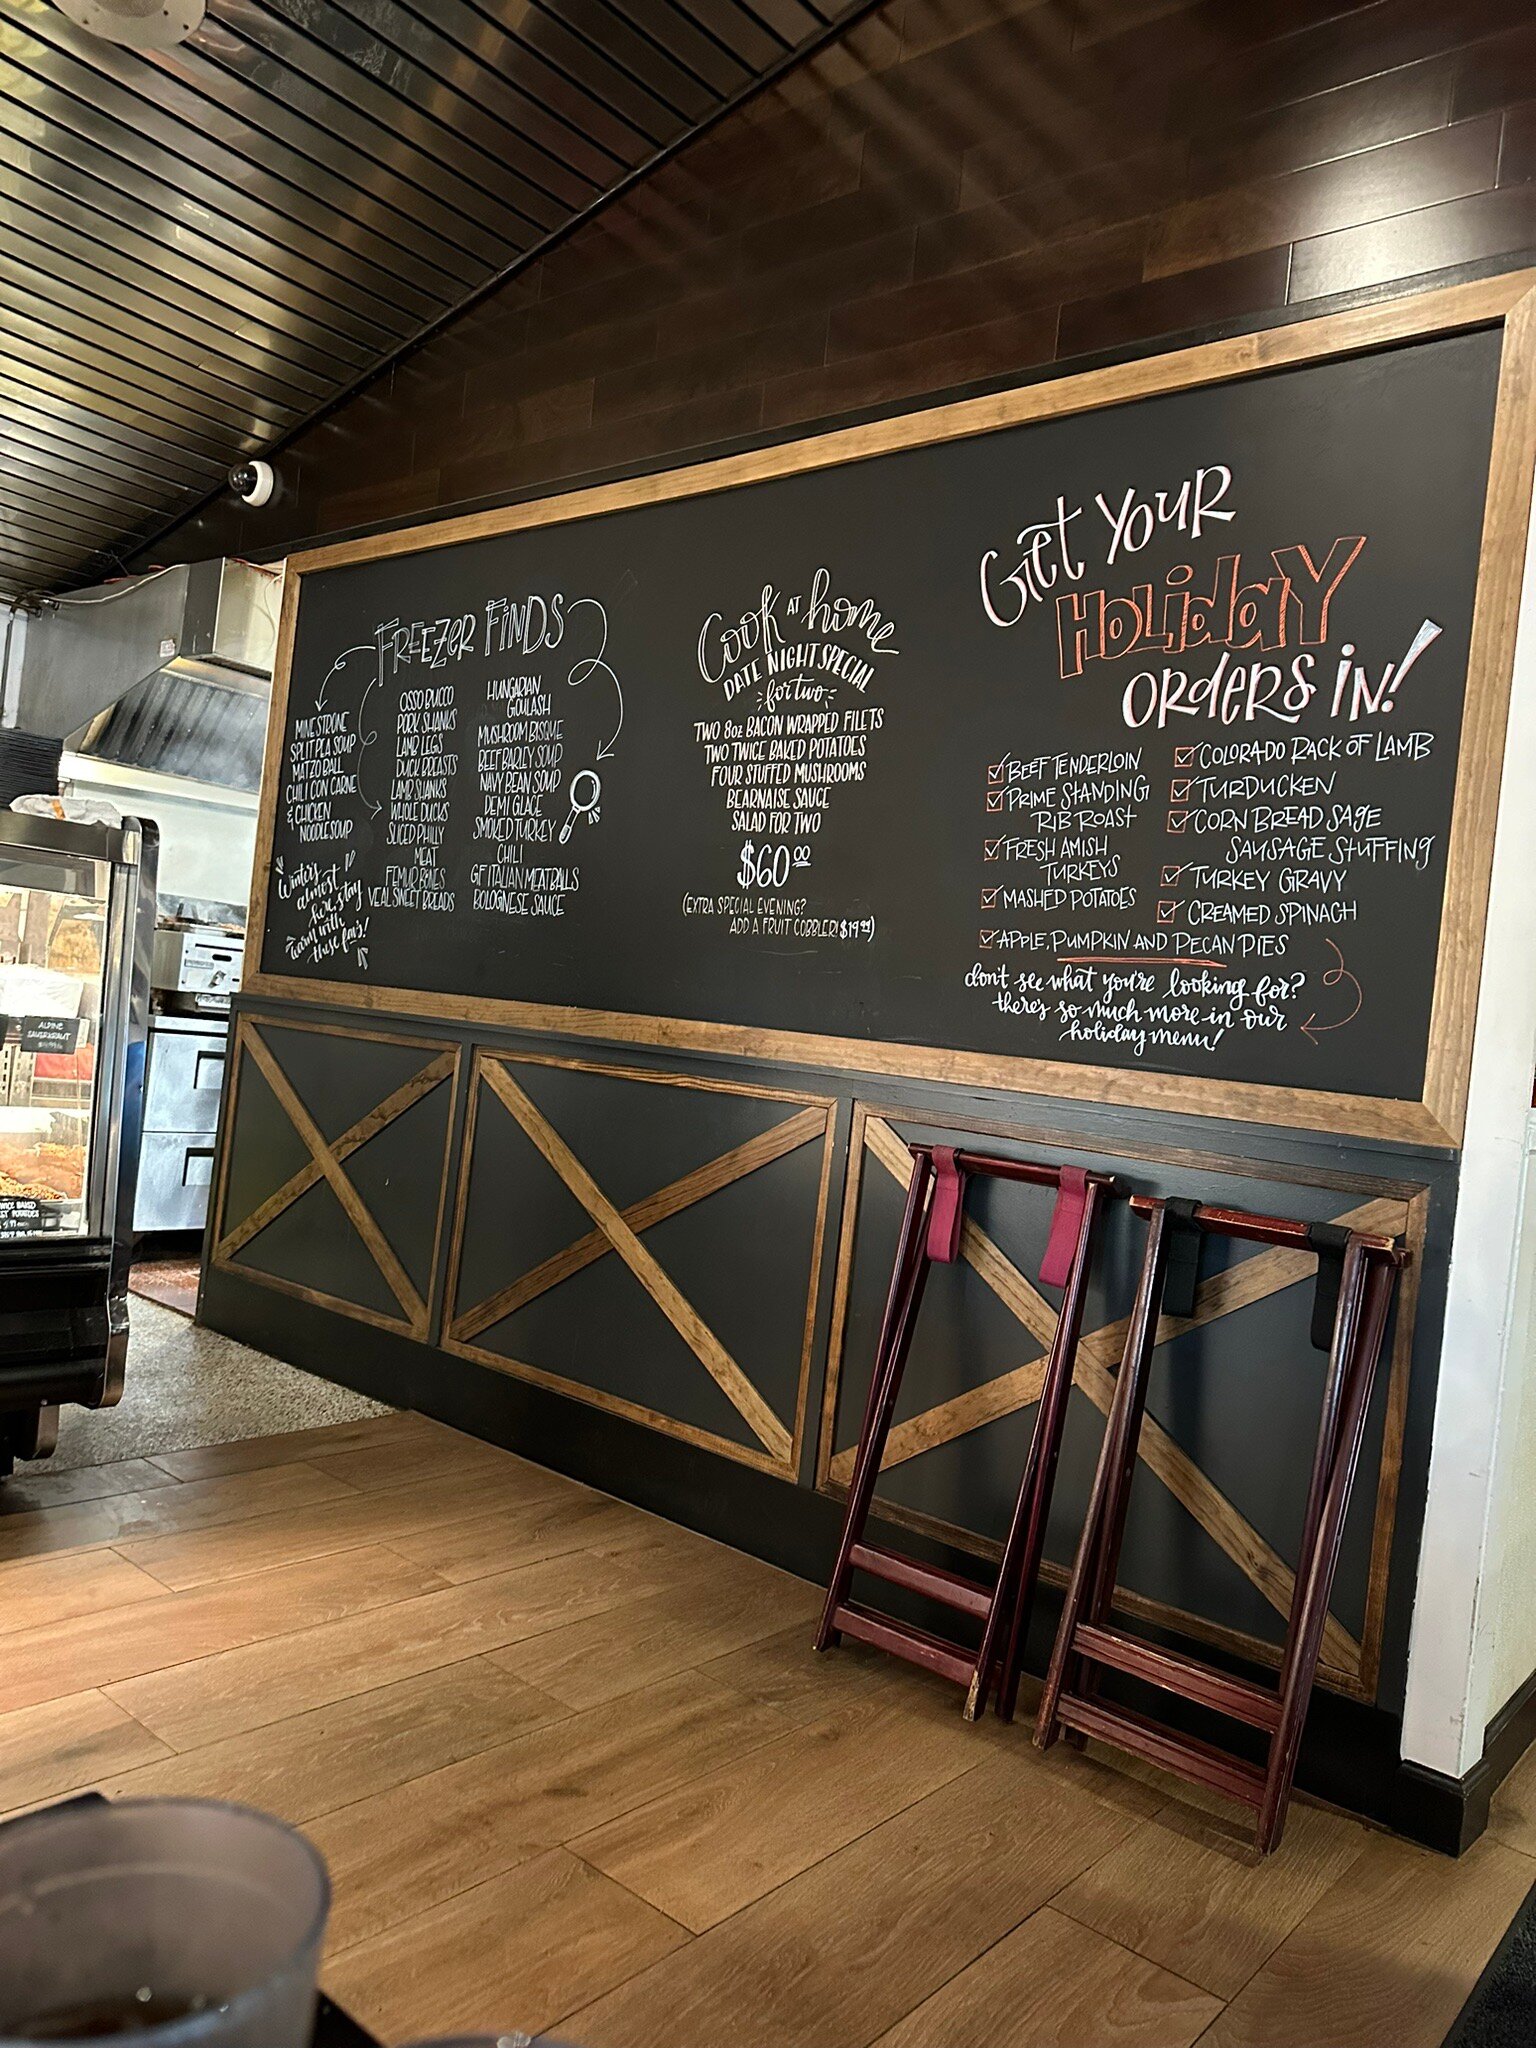 FREEZER FINDS
MINESTRONE
SPLIT PEA SOUP
MATZO BALL
CHILI CON CARNE
& CHICKEN
NOODLE SOUP
Winter's
almost
here, stay
warm with
these fav's!
OSSO BUCCO
PORK SHANKS
LAMB LEGS
DUCK BREASTS
LAMB SHANKS
WHOLE DUCKS
SLICED PHILLY
MEAT
FEMUR BONES
VEAL SWEET BREADS
HUNGARIAN
GOULASH
MUSHROOM BISQUE
BEEF BARLEY SOUP
NAVY BEAN SOUP
DEMI GLACE
SMOKED TURKEY
CHILI
GF ITALIAN MEATBALLS
BOLOGNESE SAUCE
Cook AT home
DATE NIGHT SPECIAL
for two
TWO 8oz BACON WRAPPED FILETS
TWO TWICE BAKED POTATOES
FOUR STUFFED MUSHROOMS
BEARNAISE SAUCE
SALAD FOR TWO
$60.00
(EXTRA SPECIAL EVENING?
ADD A FRUIT COBBLER! $19.99)
Get YOUR
HOLIDAY
ORDERS IN!
BEEF TENDERLOIN
PRIME STANDING
RIB ROAST
FRESH AMISH
TURKEYS
MASHED POTATOES
COLORADO RACK OF LAMB
TURDUCKEN
CORN BREAD SAGE
SAUSAGE STUFFING
TURKEY GRAVY
CREAMED SPINACH
APPLE, PUMPKIN AND PECAN PIES
don't see what you're looking for?
there's so much more in our
holiday menu!
ALPINE
SAUERKRAUT